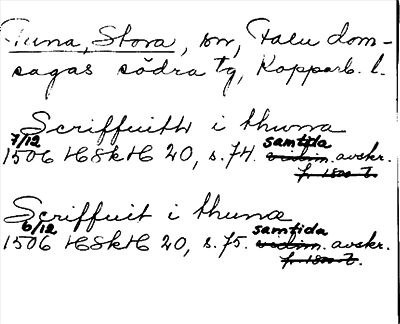 Tuna, Stora, sn, Falu dom-
sagas södra tg, Kopparb. l.
Scriffuith i thuna
7/12 samtida
1506 HSkH 20, s. 74. vidim. avskr.
f. 1800 t.
Scriffuit i thuna
6/12 samtida
1506 HSkH 20, s. 75. vidim. avskr.
f. 1800 t.